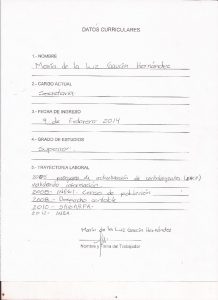 DATOS CURRICULARES
1.- NOMBRE
María de la Luz García Hernández
2.- CARGO ACTUAL
Secretaria
3.- FECHA DE INGRESO
9 de Febrero 2014
4.- GRADO DE ESTUDIOS
Superior.
5.- TRAYECTORIA LABORAL
2005 programa de actualización de
validando información.
2005- INEGI- Censo de población
2008- Despacho contable
2010 - SAGARPA
2012 - INEA
María de la Luz García Hernández
Nombre y Firma del Trabajador